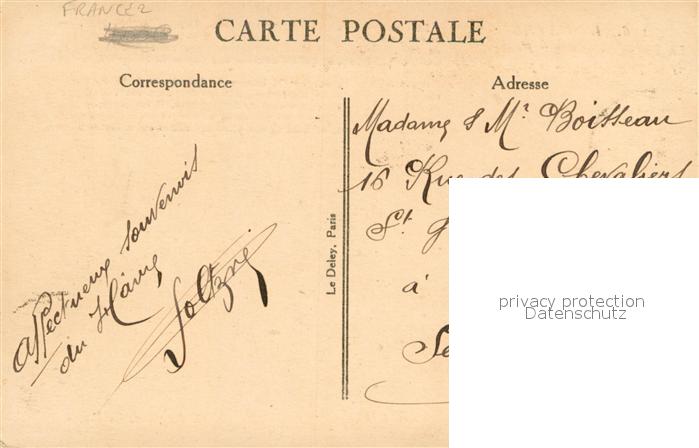 FRANCE 2
CARTE POSTALE
Correspondance
Adresse
Affectueux souvenirs
du Hâvre
Le Deley, Paris
Madame & Mr. Boisseau
16 Rue des Chevaliers
St. G
à
Se
privacy protection
Datenschutz